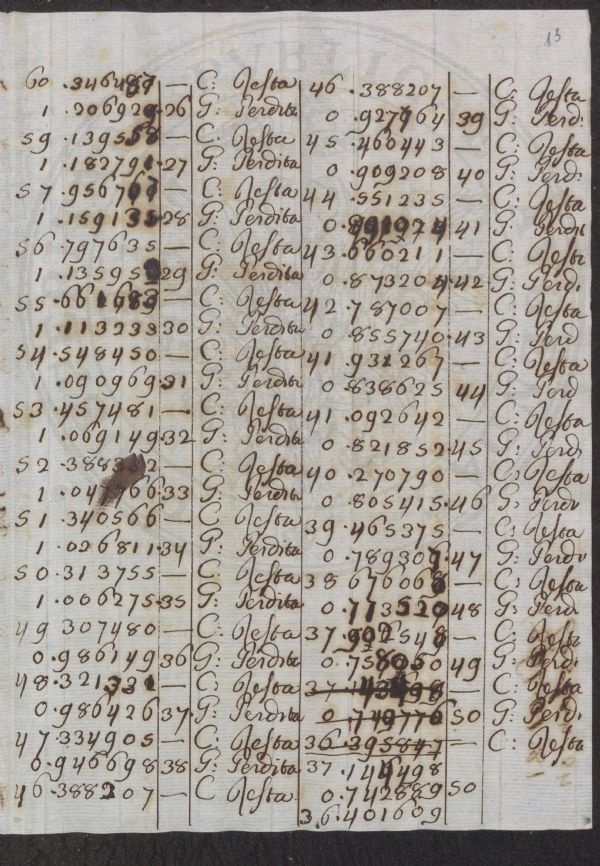 13
60 .346487 — C: Resta
1 .206929 .26 G: Perdita
59 .139558 — C: Resta
1 .182791 .27 G: Perdita
57 .956767 — C: Resta
1 .159132 .28 G: Perdita
56 .797635 — C: Resta
1 .135952 .29 G: Perdita
55 .661683 — C: Resta
1 .113233 .30 G: Perdita
54 .548450 — C: Resta
1 .090969 .31 G: Perdita
53 .457481 — C: Resta
1 .069149 .32 G: Perdita
52 .388332 — C: Resta
1 .047766 .33 G: Perdita
51 .340566 — C: Resta
1 .026811 .34 G: Perdita
50 .313755 — C: Resta
1 .006275 .35 G: Perdita
49 307480 — C: Resta
0 .986149 36 G: Perdita
48 .321331 — C: Resta
0 .986426 37 G: Perdita
47 334905 — C: Resta
0 .946698 38 G: Perdita
46 .388207 — C Resta
46 .388207 — C: Resta
0 .927764 39 G: Perd:
45 .460443 — C: Resta
0 .909208 40 G: Perd:
44 .551235 — C: Resta
0 .891024 41 G: Perdit
43 .660211 — C: Resta
0 .873204 .42 G: Perd:
42 .787007 — C: Resta
0 .855740 .43 G: Perd
41 931267 — C: Resta
0 .838625 44 G: Perd
41 .092642 — C: Resta
0 .821852 45 G: Perd:
40 .270790 — C: Resta
0 .805415 .46 G: Perd
39 .465375 — C: Resta
0 .789307 .47 G: Perd
38 676068 — C: Resta
0 .773520 48 G: Perd
37 .902548 — C: Resta
0 .758050 49 G: Perd:
37 .143498 — C: Resta
0 .749776 50 G: Perd:
36 395847 — C: Resta
37 .144498
0 .742889 50
36 .401609